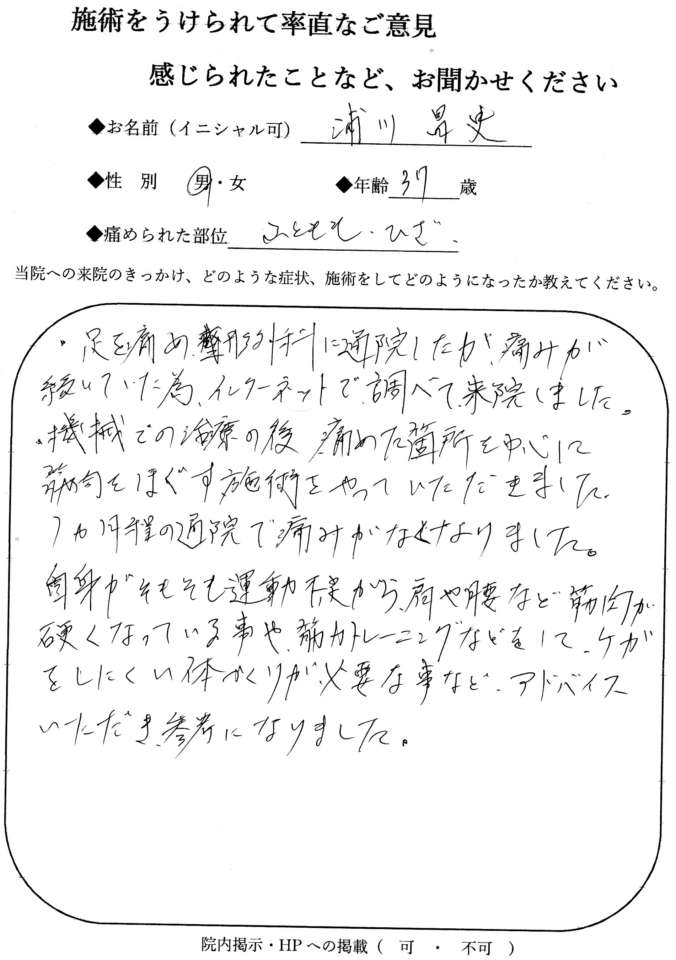 施術をうけられて率直なご意見
感じられたことなど、お聞かせください
◆お名前（イニシャル可） 浦川 昇史
◆性 別 男・女 ◆年齢 37 歳
◆痛められた部位 ふともも・ひざ.
当院への来院のきっかけ、どのような症状、施術をしてどのようになったか教えてください。
・足を痛め、整形外科に通院したが、痛みが
続いていた為、インターネットで調べて、来院しました。
・機械での治療の後 痛めた箇所を中心に
筋肉をほぐす施術をやっていただきました。
1カ月程の通院で痛みがなくなりました。
自身がそもそも運動不足から、肩や腰など筋肉が
硬くなっている事や、筋力トレーニングなどをして、ケガ
をしにくい体づくりが必要な事など、アドバイス
いただき、参考になりました。
院内掲示・HPへの掲載（ 可 ・ 不可 ）